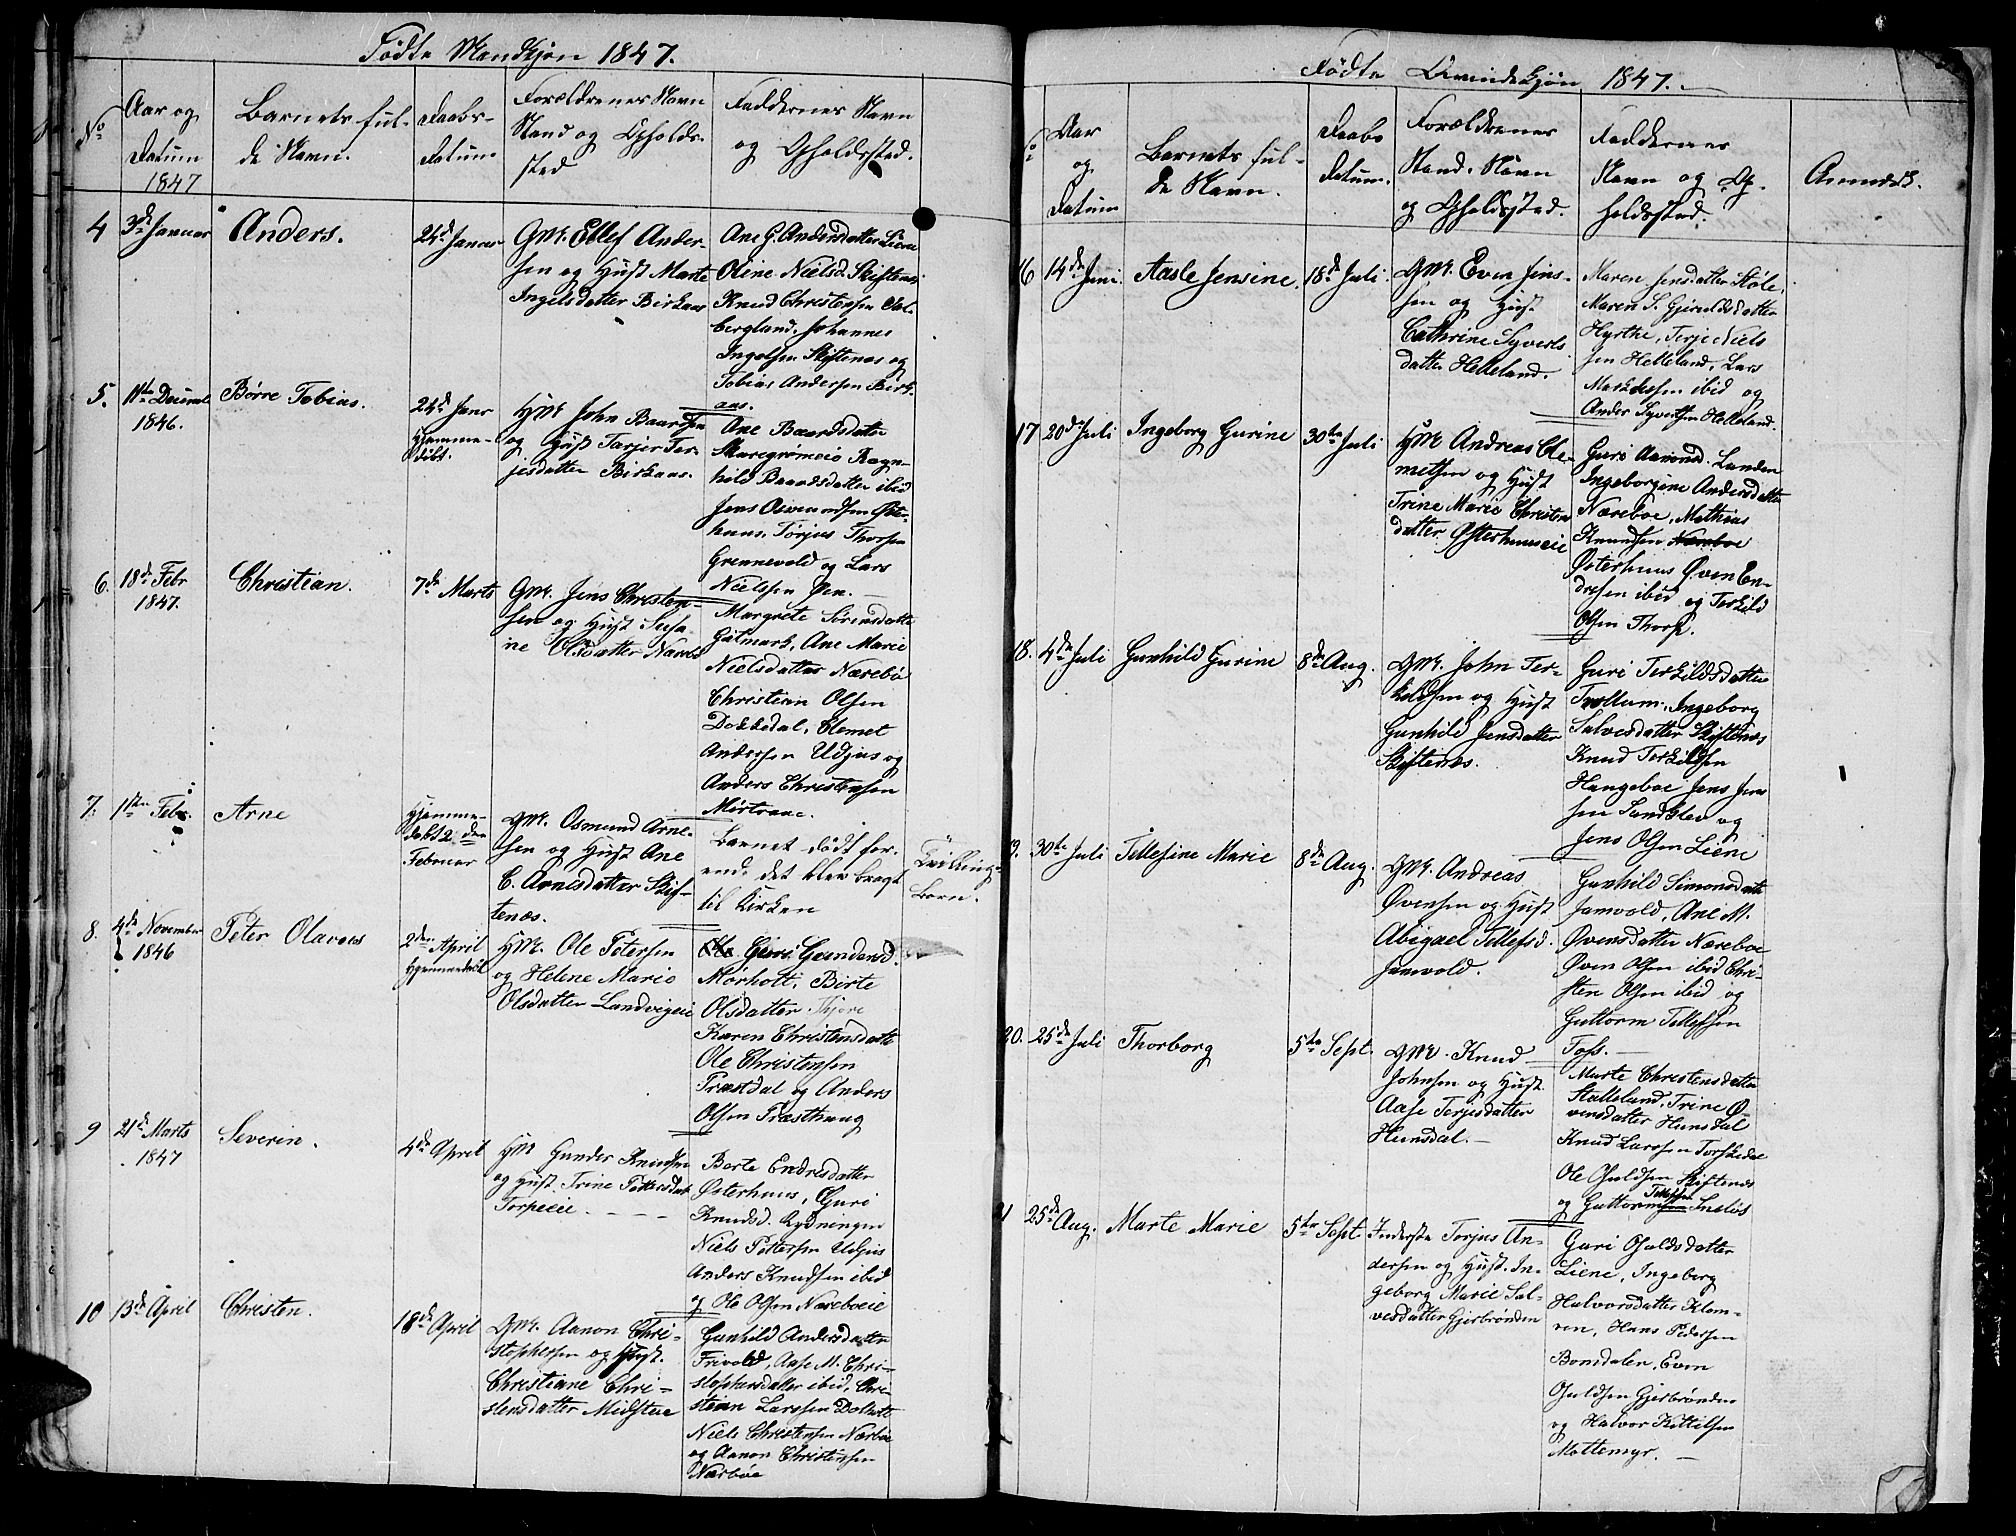 Fødte Mandkjøn 1847.
No
Aar og
Datum
1847
Barnets ful-
de Navn.
Daabs-
Datum
Forældrenes Navn
Stand og Opholds-
sted
Faddernes Navn
og Opholdssted.
4
3de Januar
Anders.
24de Januar
Gmd. Ellef Ander-
sen og Hust Marte
Ingelsdatter Birkaas
Ane G. Andersdatter Liene
Oline Nielsd. Skiftenes
Knud Christensen
bergland, Johannes
Ingelsen Skiftenes og
Tobias Andersen Birk-
aas.
5.
11te Decemb
1846.
Børre Tobias.
24de Janr
Hjemme-
døbt.
Hmd John Baardsen
og Hust Tarjer Ter-
jesdatter Birkaas.
Ane Baardsdatter
Skaregrømeie Ragn-
hild Baardsdatter ibid
Jens Øster-
huus, Torjus Thorsen
Grennevold og Lars
Nielssen Øen.
6.
18de Febr
1847.
Christian.
7de Marts
Gmd. Jens Christen-
sen og Hust Susa-
ne Olsdatter Nærebø
Margrete Sørensdatter
Ane Marie
Nielsdatter Nærebø
Christian Olsen
Dokkedal, Clemet
Andersen Udjus og
Anders Christensen
7.
1ste Febr.
Arne
Hjemme-
døbt 2den
Februar
Gmd. Osmund Arne-
sen og Hust Ane
C. Arnesdatter Skif-
tenæs.
Barnet dødt for-
end det blev bragt
til Kirken
Tvillinge-
Børn.
8.
4de November
1846
Peter Olaves
2den April
Hjemmedøbt
Hmd. Ole Petersen
og Helene Marie
Olsdatter Landvigeie
Guri Gundersd.
Mørholt, Birte
Olsdatter
Karen Christensdatte
Ole Christensen
Præstdal og Anders
Olsen Præsthaug
9
21de Marts
1847
Severin.
4de April
Hmd Gunder Knudsen
og Hust. Trine Pettersdat
Torpeeie
Berte Endresdatter
Østerhuus, Guri
Knudsd. Rydningen
Niels Pettersen Udjus
Anders Knudsen ibid
og Ole Olsen Næreboeie
10
13de April
Christen.
18de April
Gmd. Aanon Chri-
stophersen og Hust.
Christiane Chri-
stensdatter Midstue
Gunhild Andersdatter
Frivold, Aase M. Chri-
stophersdatter ibid, Chri-
stian Larssen
Niels Christensen Nærbøe
og Aanon Christensen
Nærbøe
Fødte Qvindekjøn 1847.
No
Aar
og
Datum
Barnets ful-
de Navn.
Daabs
Datum.
Forældrenes
Stand, Navn
og Opholdssted.
Faddernes
Navn og Op-
holdssted.
Anmærk.
16
14de Juni.
Aasle Jensine.
18de Juli
Gmd. Even Jens-
sen og Hust
Cathrine Syverts
datter Helleland.
Maren Jensdatter Støle,
Maren S. Gjeruldsdatter
Hyrthe, Terje Niels
sen Helleland, Lars
ibid og
Ander Syvertsen Helleland.
17
20de Juli
Ingeborg Gurine
30te Juli
Hmd Andreas Cle-
metsen og Hust
Trine Marie Christens
datter Østerhuuseie
Guri Aamond. Lunden
Ingeborgine Andersdatter
Næreboe, Mathias
Knudsen Næreboe
Østerhuus Øven En-
dresen ibid og Terkild
Olsen Thorp.
18.
4de Juli
Gunhild Gurine
8de Aug.
Gmd. John Ter-
kildsen og Hust
Gunhild Jensdatter
Skiftenæs.
Guri Terkildsdatter
Trollum, Ingeborg
Salvesdatter Skiftenæs
Knud Terkildsen
Haugeboe Jens Jens
sen Sandklev og
Jens Olsen Liene
19.
30te Juli
Tellefine Marie
8de Aug.
Gmd. Andreas
Øvensen og Hust
Abigael Tellefsd.
Jamvold.
Gunhild Simonsdatte
Jamvold, Ane M.
Øvensdatter Næreboe
Øven Olsen ibid Chri-
sten Olsen ibid og
Guttorm Tellefsen
Toss.
20.
25de Juli
Thorborg
5te Sept.
Gmd. Knud
Johnsen og Hust.
Aase Terjesdatter
Hunsdal.
Marte Christensdatter
Stalleland, Trine Ø-
vensdatter Hunsdal
Knud Larssen Torskedal
Ole Osuldsen Skiftenæs
og Guttorm Tellefsen
21
25de Aug.
Marte Marie
5te Sept
Inderste Torjus An-
dersen og Hust. In-
geborg Marie Sal-
vesdatter Gjerbrønden
Guri Osuldsdatter
Liene, Ingeborg
Halvorsdatter Klom-
ren, Hans Pedersen
Bomdalen, Even
Osuldsen Gjerbrønden
og Halvor Kittilsen
Mollemyr.